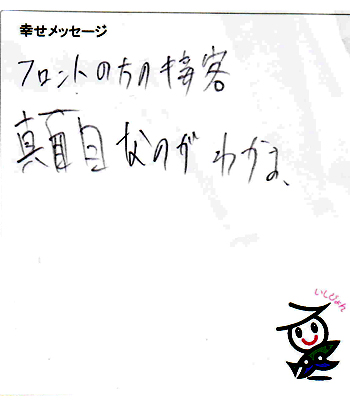 幸せメッセージ
フロントの方の接客
真面目なのがわかる、
いしぴょん